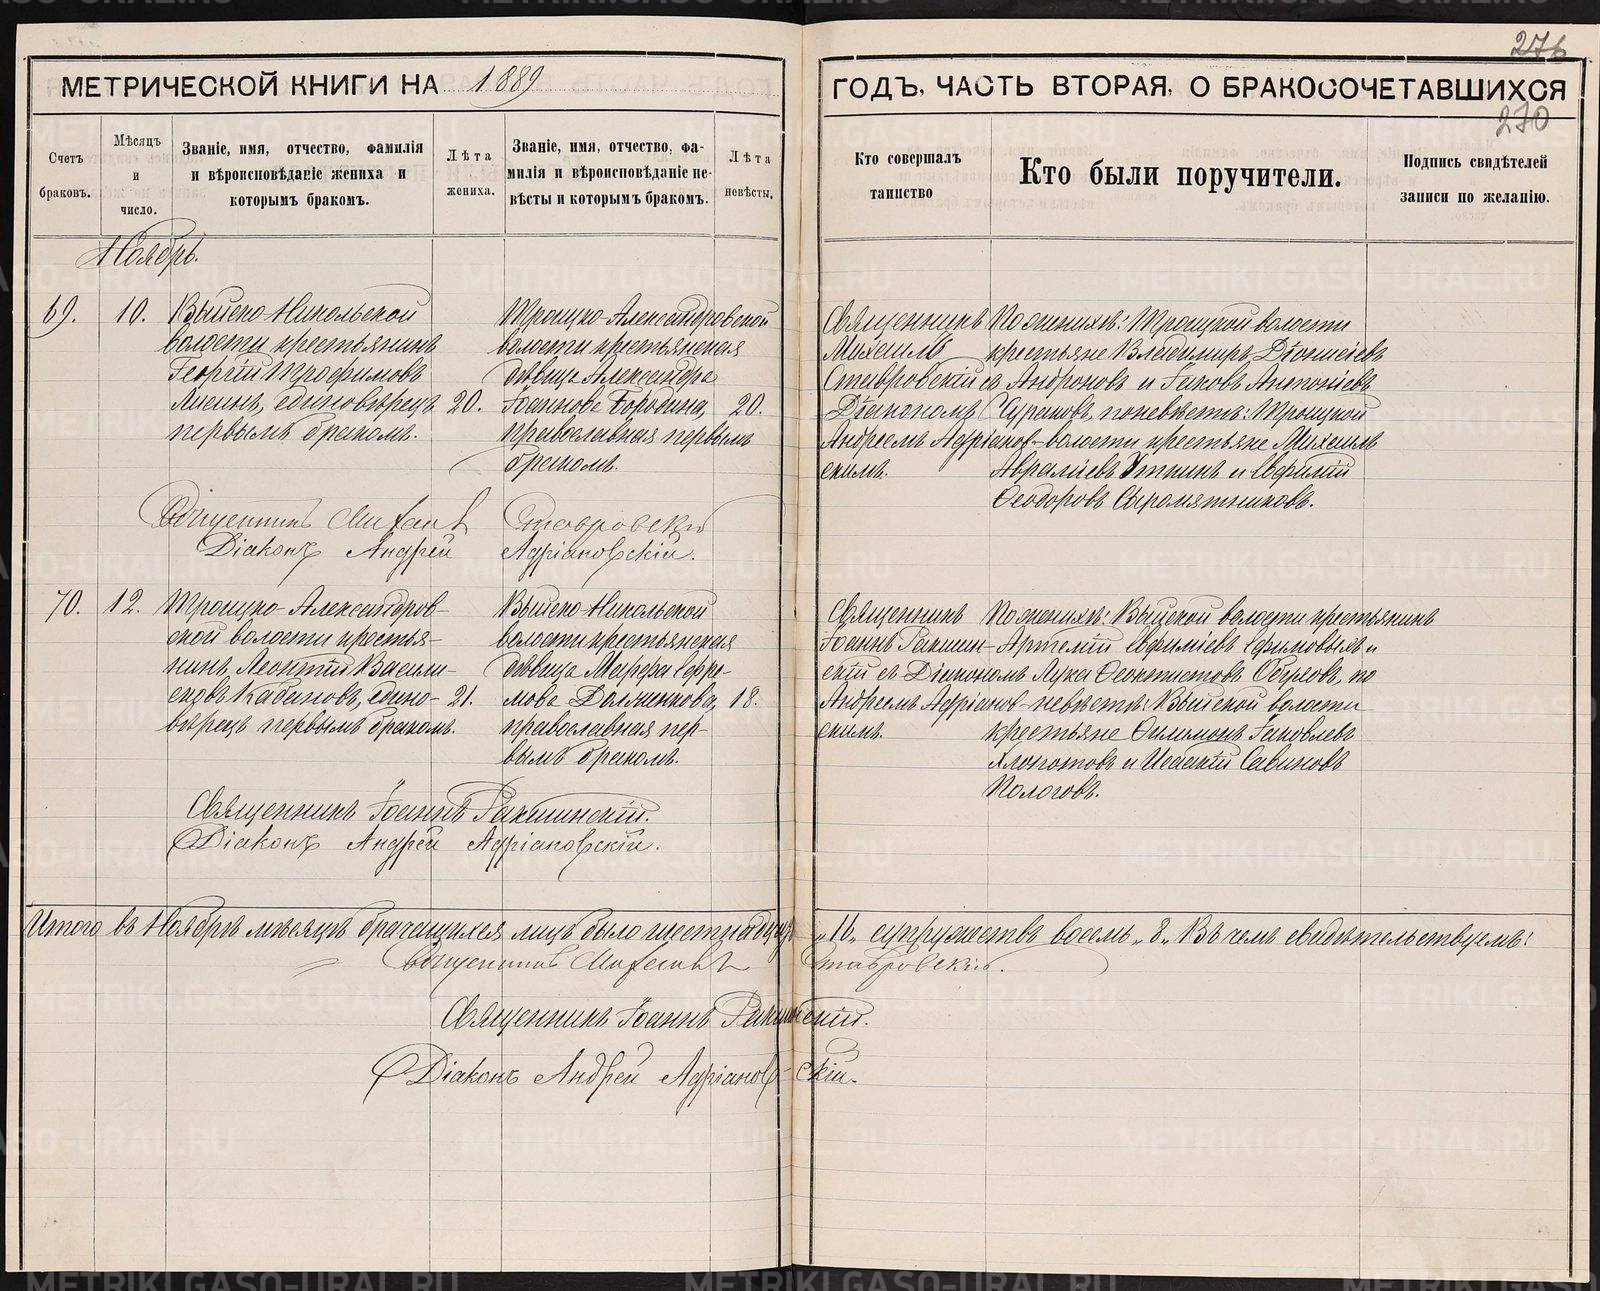 276
МЕТРИЧЕСКОЙ КНИГИ НА 1889
ГОДЪ, ЧАСТЬ ВТОРАЯ, О БРАКОСОЧЕТАВШИХСЯ
270
Счетъ
браковъ.
Мѣсяцъ
и
число.
Званіе, имя, отчество, фамилія
и вѣроисповѣданіе жениха и
которымъ бракомъ.
Лѣта
жениха.
Званіе, имя, отчество, фа-
милія и вѣроисповѣданіе не-
вѣсты и которымъ бракомъ.
Лѣта
невѣсты.
Кто совершалъ
таинство
Кто были поручители.
Подпись свидѣтелей
записи по желанію.
Ноябрь.
69.
10.
Выйско-Никольской
волости крестьянинъ
Георгій Трофимовъ
Лисинъ, единовѣрецъ
первымъ бракомъ.
20.
Троицко-Александровской
волости крестьянская
дѣвица Александра
Іоаннова Бородина,
православная первымъ
бракомъ.
20.
Священникъ
Михаилъ
Ставровскій съ
Діакономъ
Андреемъ Адріанов-
скимъ.
По женихѣ: Троицкой волости
крестьяне Владимиръ Діонисіевъ
Андроновъ и Іаковъ Антоніевъ
Чураковъ, по невѣстѣ: Троицкой
волости крестьяне Михаилъ
Авраміевъ Уткинъ и Евфимій
Ѳеодоровъ Сыромятниковъ.
Священникъ Михаилъ Ставровскій
Діаконъ Андрей Адріановскій.
70.
12.
Троицко-Александров-
ской волости крестья-
нинъ Леонтій Василь-
евъ Кабановъ, едино-
вѣрецъ первымъ бракомъ.
21.
Выйско-Никольской
волости крестьянская
дѣвица Марфа Ефре-
мова Долженкова,
православная пер-
вымъ бракомъ.
18.
Священникъ
Іоаннъ Ракшин-
скій съ Діакономъ
Андреемъ Адріанов-
скимъ.
По женихѣ: Выйской волости крестьянинъ
Артемій Евфиміевъ Ефимовыхъ и
Лука Ѳеоктистовъ по
невѣстѣ: Выйской волости
крестьяне Филимонъ Іаковлевъ
Хлопотовъ и Исаакій Савиновъ
Пологовъ.
Священникъ Іоаннъ Ракшинскій.
Діаконъ Андрей Адріановскій.
Итого въ Ноябрѣ мѣсяцѣ брачащихся лицъ было шестнадцать „16„ супружествъ восемь „8„ Въ чемъ свидѣтельствуемъ:
Священникъ Михаилъ Ставровскій.
Священникъ Іоаннъ Ракшинскій.
Діаконъ Андрей Адріановскій.
METRIKI.GASO-URAL.RU